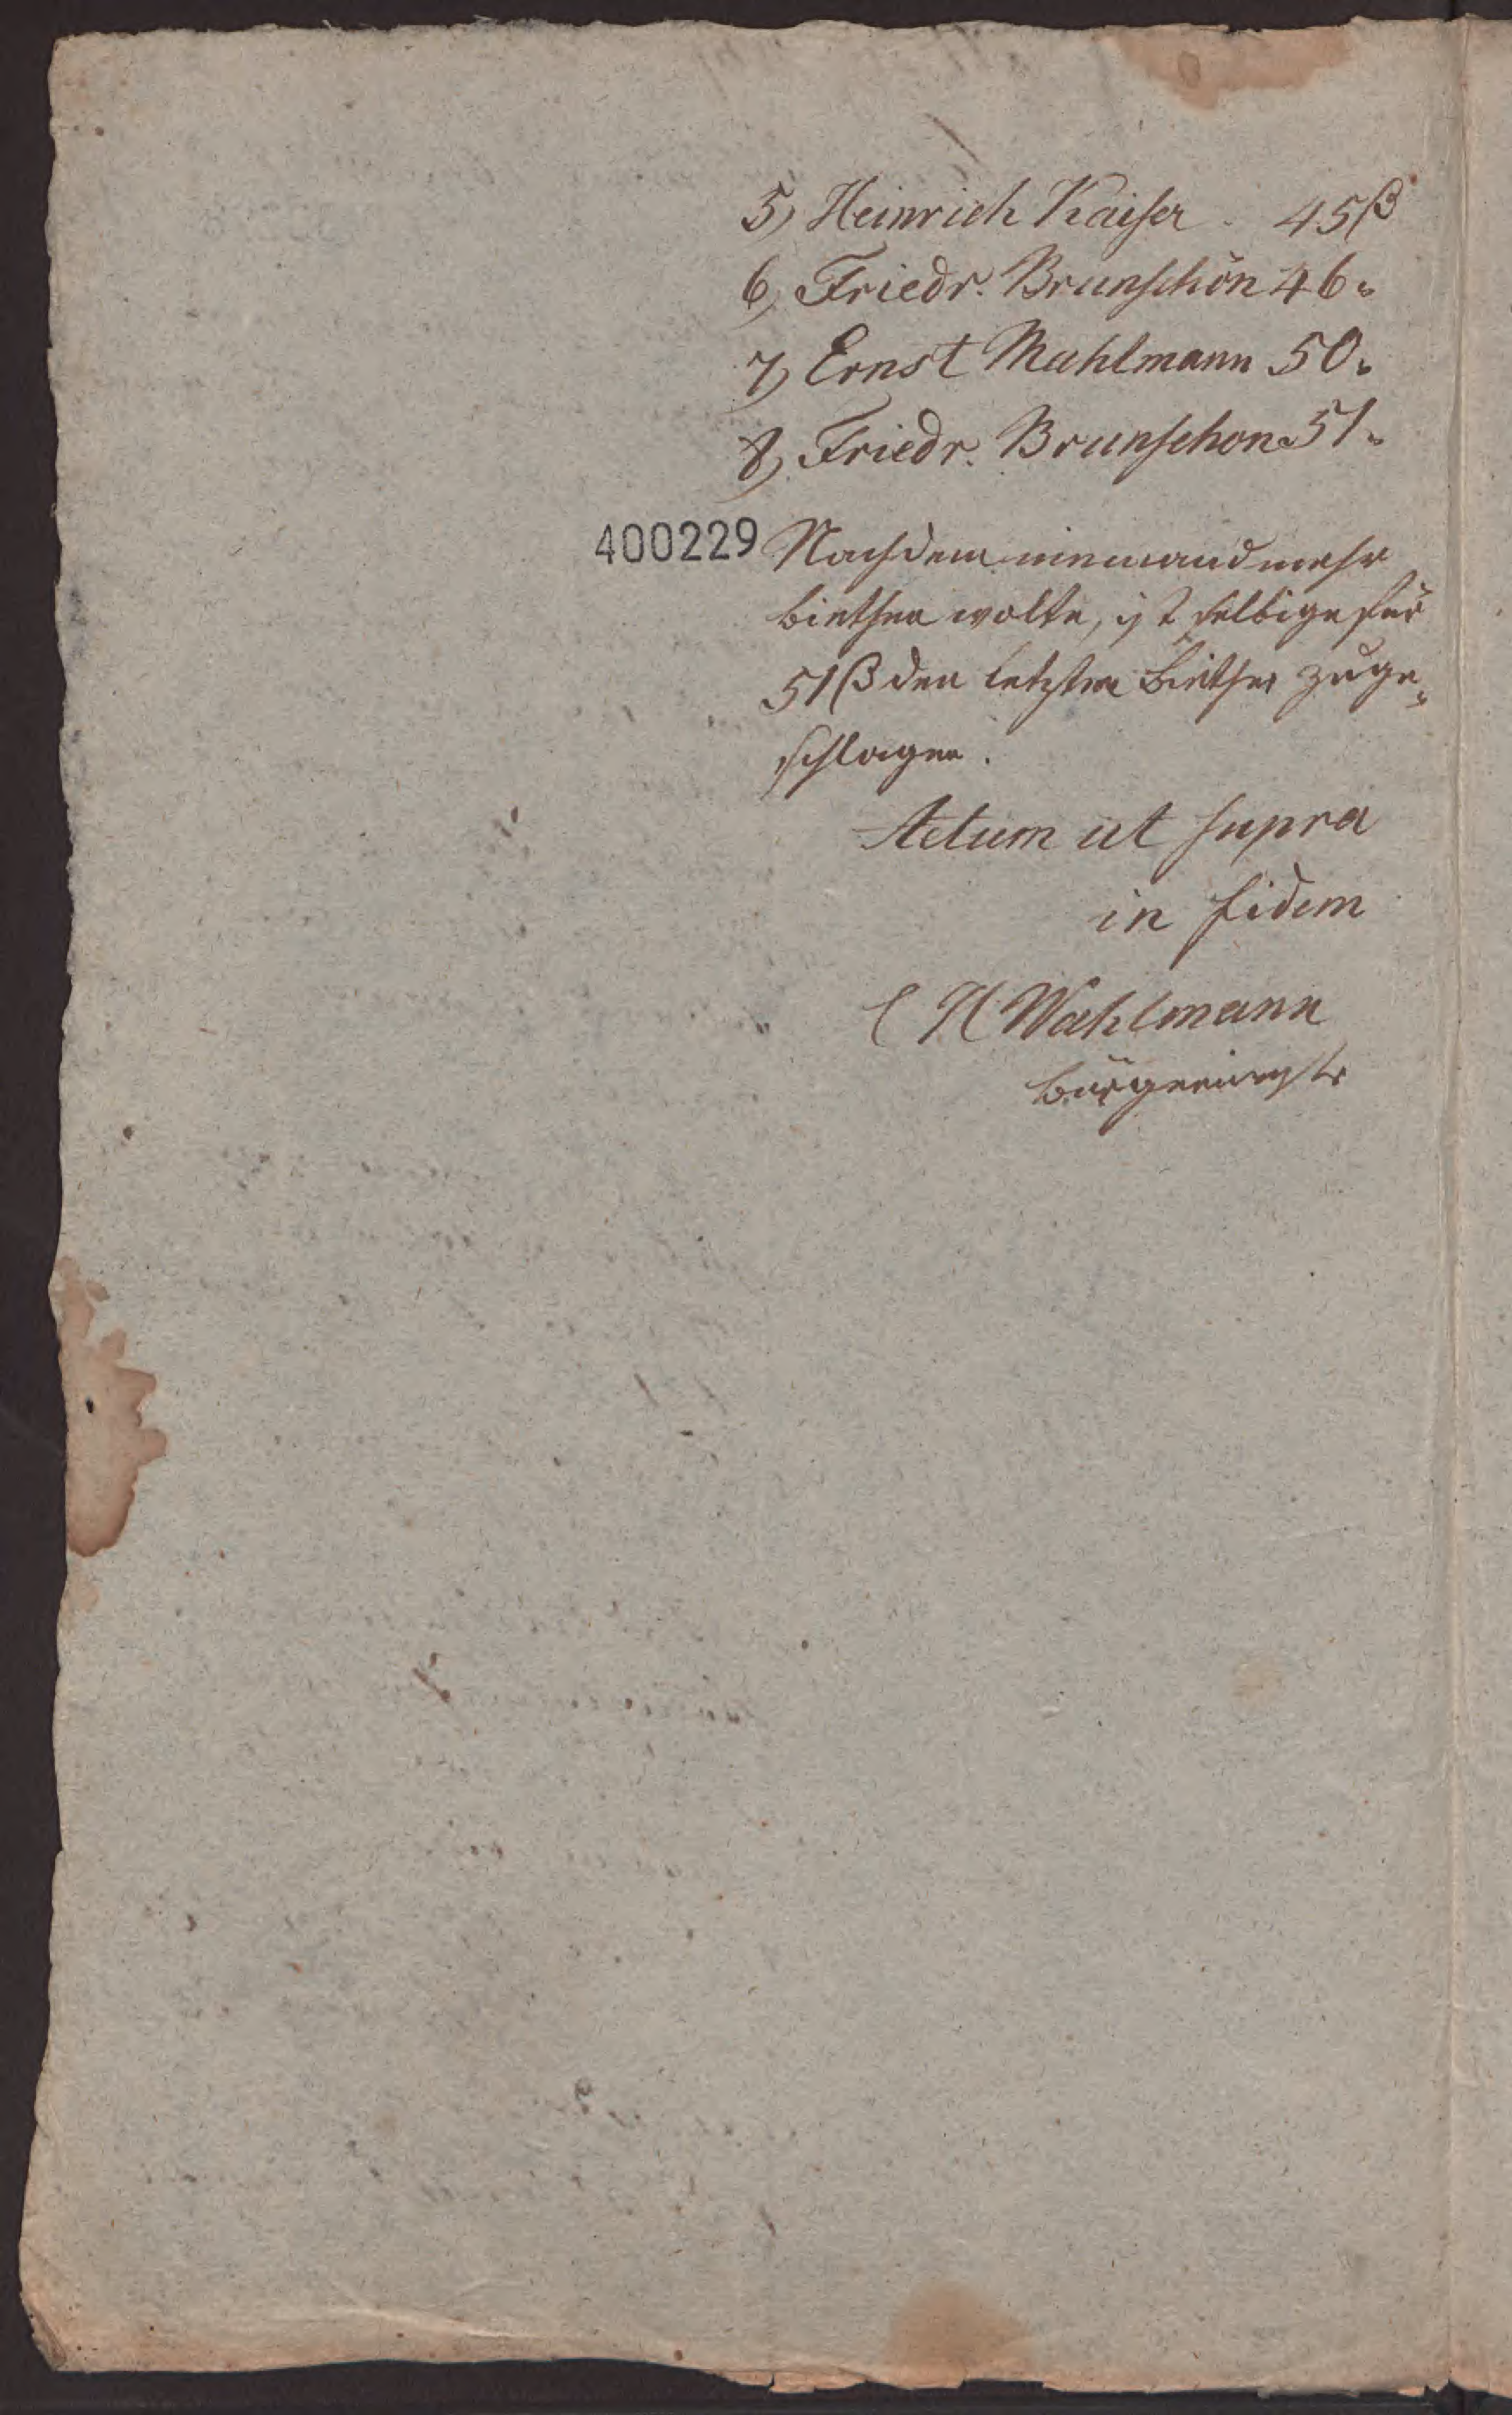 5) Heinrich Kaiser. 45 ß
6) Friedr. Brunschön 46 "
7) Ernst Mahlmann 50 "
8) Friedr. Brunschon 51 "
400229
Nachdem niemand mehr
biethen wolte, ist selbige für
51 ß den letzten Biether zuge-
schlagen.
Actum ut supra
in fidem
C H Wahlmann
Bürgermeistr